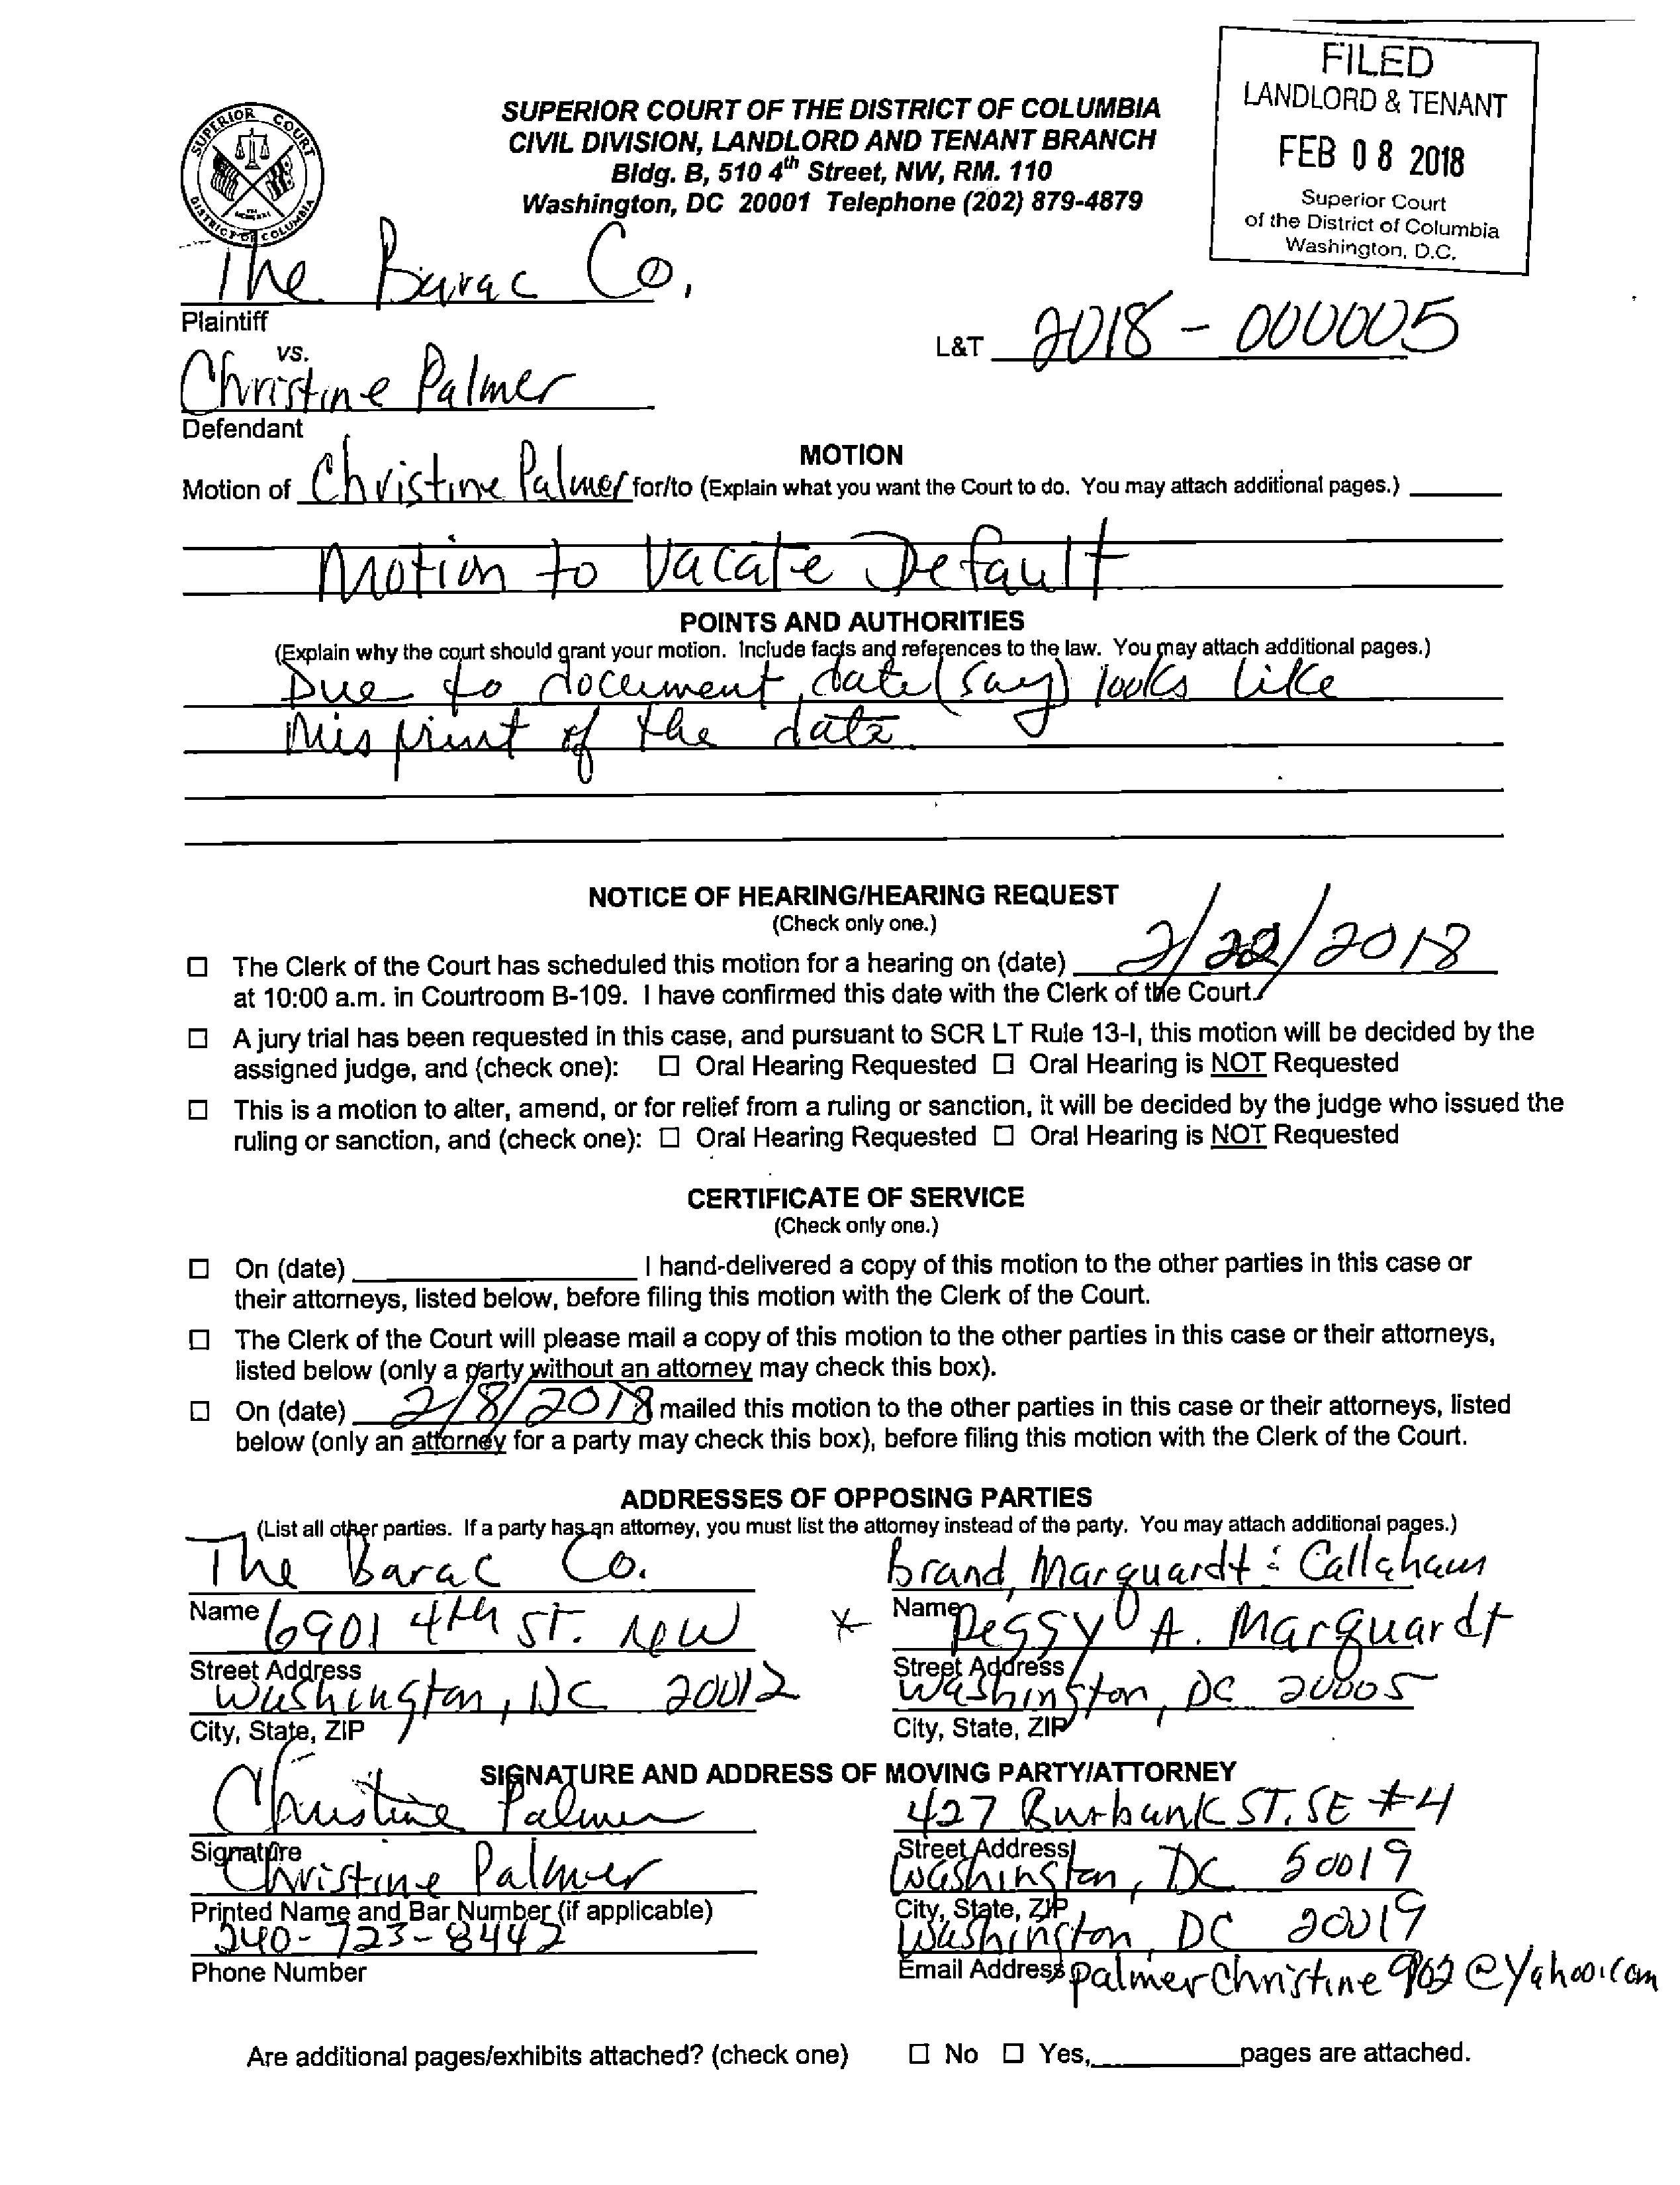 FILED
LANDLORD & TENANT
FEB 08 2018
Superior Court
of the District of Columbia
Washington, D.C.
SUPERIOR COURT
DISTRICT OF COLUMBIA
SUPERIOR COURT OF THE DISTRICT OF COLUMBIA
CIVIL DIVISION, LANDLORD AND TENANT BRANCH
Bldg. B, 510 4th Street, NW, RM. 110
Washington, DC 20001 Telephone (202) 879-4879
The Barac Co.
Plaintiff
vs.
L&T 2018-000005
Christine Palmer
Defendant
MOTION
Motion of Christine Palmer for/to (Explain what you want the Court to do. You may attach additional pages.)
Motion to Vacate Default
POINTS AND AUTHORITIES
(Explain why the court should grant your motion. Include facts and references to the law. You may attach additional pages.)
Due to document, date (say) looks like
Misprint of the date
NOTICE OF HEARING/HEARING REQUEST
(Check only one.)
☐ The Clerk of the Court has scheduled this motion for a hearing on (date) 2/22/2018
at 10:00 a.m. in Courtroom B-109. I have confirmed this date with the Clerk of the Court.
☐ A jury trial has been requested in this case, and pursuant to SCR LT Rule 13-I, this motion will be decided by the
assigned judge, and (check one): ☐ Oral Hearing Requested ☐ Oral Hearing is NOT Requested
☐ This is a motion to alter, amend, or for relief from a ruling or sanction, it will be decided by the judge who issued the
ruling or sanction, and (check one): ☐ Oral Hearing Requested ☐ Oral Hearing is NOT Requested
CERTIFICATE OF SERVICE
(Check only one.)
☐ On (date) I hand-delivered a copy of this motion to the other parties in this case or
their attorneys, listed below, before filing this motion with the Clerk of the Court.
☐ The Clerk of the Court will please mail a copy of this motion to the other parties in this case or their attorneys,
listed below (only a party without an attorney may check this box).
☐ On (date) 2/8/2018 mailed this motion to the other parties in this case or their attorneys, listed
below (only an attorney for a party may check this box), before filing this motion with the Clerk of the Court.
ADDRESSES OF OPPOSING PARTIES
(List all other parties. If a party has an attorney, you must list the attorney instead of the party. You may attach additional pages.)
The Barac Co. Brand, Marquardt & Callahan
Name Name
6901 4th ST. NW * Peggy A. Marquardt
Street Address Street Address
Washington, DC 20012 Washington, DC 20005
City, State, ZIP City, State, ZIP
SIGNATURE AND ADDRESS OF MOVING PARTY/ATTORNEY
Christine Palmer 427 Burbank ST. SE #4
Signature Street Address
Christine Palmer Washington, DC 50019
Printed Name and Bar Number (if applicable) City, State, ZIP
240-723-8442 Washington DC 20019
Phone Number Email Address palmerchristine902@yahoo.com
Are additional pages/exhibits attached? (check one) ☐ No ☐ Yes, pages are attached.